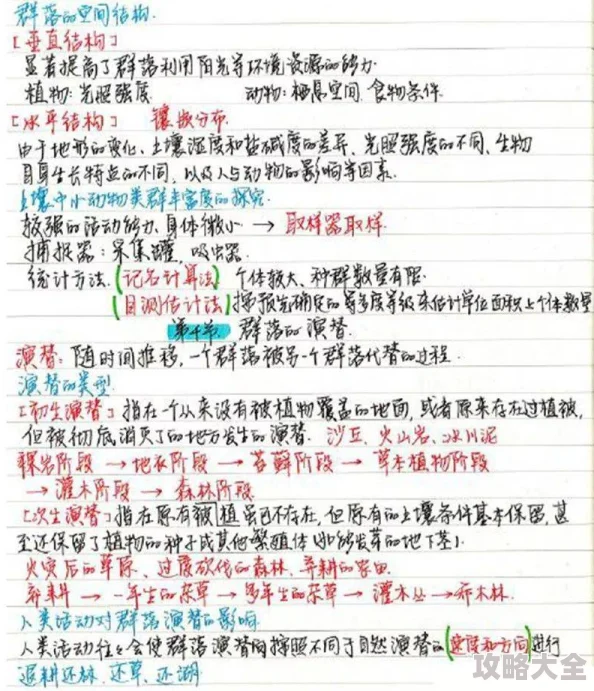 群落的空间结构.
[垂直结构]
显著提高了群落利用阳光等环境资源的能力.
植物:光照强度 动物:栖息空间.食物条件.
[水平结构] 镶嵌分布.
由于地形的变化、土壤湿度和盐碱度的差异、光照强度的不同、生物
自身生长特点的不同,以及人与动物的影响等因素.
土壤中小动物类群丰富度的探究.
较强的活动能力、身体微小 → 取样器取样.
捕捉器:采集罐,吸虫器.
统计方法.(记名计算法) 个体较大、种群数量有限.
(目测估计法) 按预先确定的多度等级来估计单位面积上个体数量
第4节 群落的演替.
演替:随时间推移,一个群落被另一个群落代替的过程.
演替的类型.
[初生演替]指在一个从来没有被植物覆盖的地面,或者原来存在过植被,
但被彻底消灭了的地方发生的演替. 沙丘、火山岩、冰川泥
裸岩阶段 → 地衣阶段 → 苔藓阶段 → 草本植物阶段
→ 灌木阶段 → 森林阶段
[次生演替]指在原有被植虽已不存在,但原有的土壤条件基本保留,甚
至还保留了植物的种子或其他繁殖体(如能发芽的地下茎).
火灾后的草原、过度砍伐的森林、弃耕的农田.
弃耕 → 一年生的杂草 → 多年生的杂草 → 灌木丛 → 乔木林.
人类活动对群落演替的影响
人类活动往往会使群落演替向按照不同于自然演替的(速度和方向)进行
退耕还林、还草、还湖
攻略大全